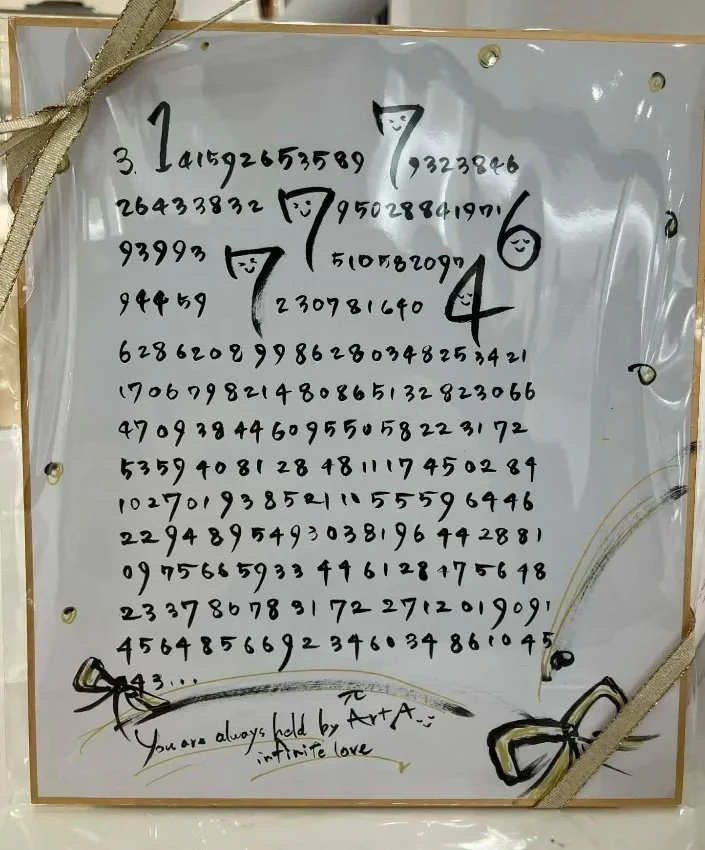 3.14159265358979323846
264338327950288419716
9399375105820974
94459230781640
628620899862803482534 21
1706798214808651328 23066
4709384460955058223172
5359408128481117450284
1027019385211055596446
2294895493038196442881
0975665933446128475648
2337867831722712019091
4564856692346034861045
43...
π
You are always held by Art A
infinite love